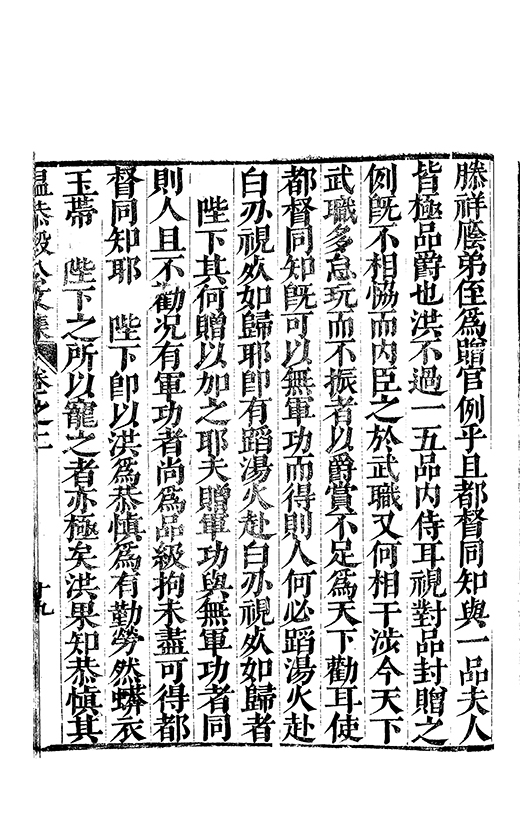 滕祥廕弟侄為贈官例乎且都督同知與一品夫人
皆極品爵也洪不過一五品內侍耳視對品封贈之
例旣不相恊而內臣之於武職又何相干涉今天下
武職多怠玩而不振者以爵賞不足為天下勸耳使
都督同知旣可以無軍功而得則人何必蹈湯火赴
白刃視死如歸耶卽有蹈湯火赴白刃視死如歸者
陛下其何贈以加之耶夫贈軍功與無軍功者同
則人且不勸况有軍功者尚為品級拘未盡可得都
督同知耶 陛下卽以洪為恭慎為有勤勞然蟒衣
玉帶 陛下之所以寵之者亦極矣洪果知恭慎其
溫恭毅公文集 卷之二 十九